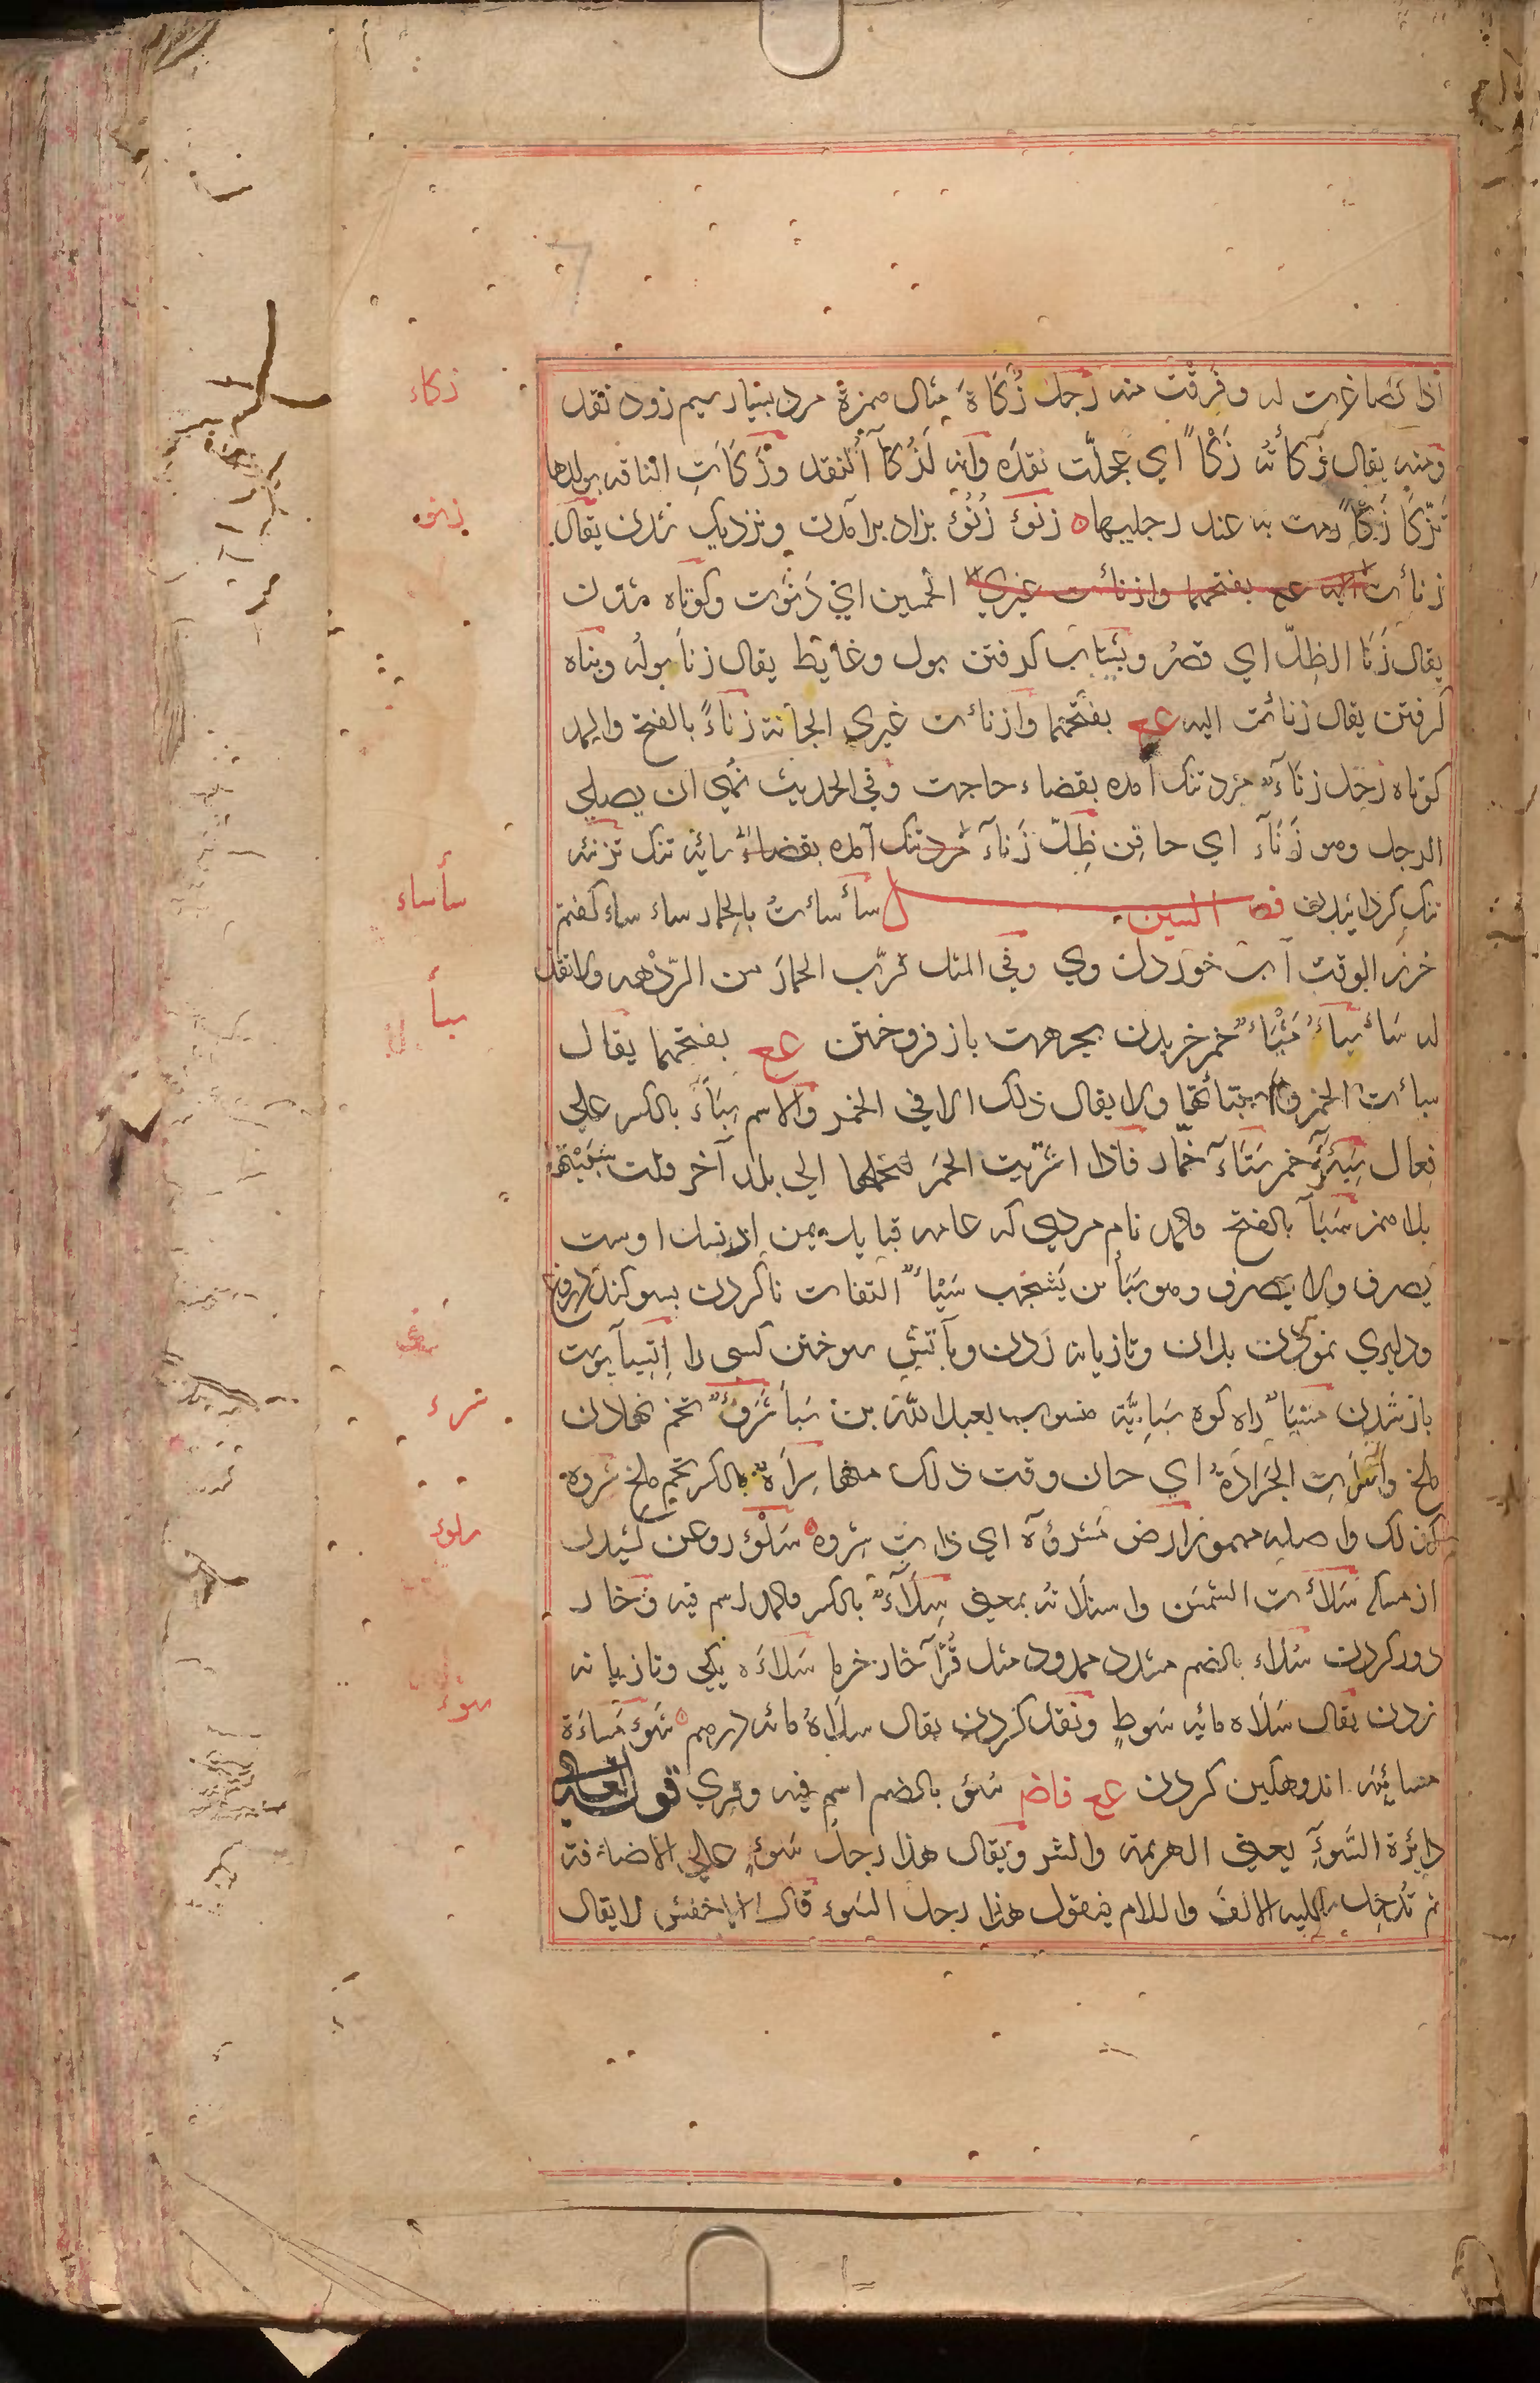 اذا تصاغرت له وفرقت منه رجل زُكَاَة مثال همزة مرد بسیار سیم زود نقد
ومنه يقال زكأته زَكْأً اي عجلّت نقده وانه لَزُكأُ النقد وزَكَأَتِ الناقه بولدها
تزكأ زكأً رمت به عند رجليها زنوء زُنُوْء بزاد برآمدن ونزدیک شدن يقال
زنأت اليه عج بفتحهما وازنأت غيري الخمسين اي دَنَوت وکوتاه شدن
يقال زَنَا الظِلّ اي قصُر وشتاب گرفتن بول وغایط يقال زنأ بولُه وپناه
گرفتن يقال زنائت اليه عج بفتحهما وازنات غيري الجأته زناءً بالفتح والمد
کوتاه رجل زناءٌ مرد تنک آمده بقضاء حاجت وفي الحديث نهي ان يصلي
الرجل وهو زَنَآء اي حاقن ظِلّ زَنآء مرد تنک آمده بقضاء سائه تنک تزنئه
تنک گردانیدن فصل السين سأسأتُ بالحمار ساء ساء گفتم
خررا بوقت آب خوردن وي وفي المثل قرّب الحمار من الرّدْهه ولا تقل
له سَاء سِباء مَسْبَاءٌ خمر خریدن بجرعت باز فروختن عج بفتحهما يقال
سبات الخمر واستبائتها ولا يقال ذلك الا في الخمر والاسم سِبَاءً بالكسر علي
فِعال سَبِيئَة خمر سَبَّاء خمّار فاذا اشتريت الخمر لتحملها الي بلد آخر قلت سَبَيْتُها
بلا همز سَبَأ بالفتح والمد نام مردي که عامه قبایل یمن از نسل اوست
يصرف ولا يصرف وهو سَبَأ بن يَشجُب سَبْاءٌ التفات ناکردن بسوگند دروغ
ودلیری نمودن بدان وتازیانه زدن وبآتش سوختن کسی را اِنسِباء پوست
باز شدن مَسْبَاٌ راه کوه سَبَائِيَّة منسوب بعبد الله بن سَبأ سَرْءٌ تخم نهادن
ملخ واَسْرَاتِ الجَرادَةُ اي حان وقت ذلك منها سِرأةٌ بالكسر تخم ملخ سروه
كذلك واصله مهموز ارض مَسْرؤة اي ذات سِروه سَلْؤ روغن کشیدن
از مسکه سَلأت السّمن واستلاته بمعني سِلَآءٌ بالكسر والمد اسم فيه وخار
دور کردن سُلاء بالضم مشدد ممدود مثل قُرّآء خار خرما سُلاءَه یکي وتازیانه
زدن يقال سَلَاَه مایه سَوطٍ ونقد کردن يقال سلَاَهُ مائه درهم سَوء مَساءَة
مسائيه اندوهگین کردن عج فاضم سُوء بالضم اسم فيه وقري قوله تعالي
دايرة السَّوءِ يعني الهزيمة والشر ويقال هذا رجل سَوءٍ علي الاضافة
ثم تُدخل عليه الالف واللام فتقول هذا رجل السَوء قال الاخفش لا يقال
زكاء
زنوء
سأساء
سبأ
سرء
سلوء
سوء